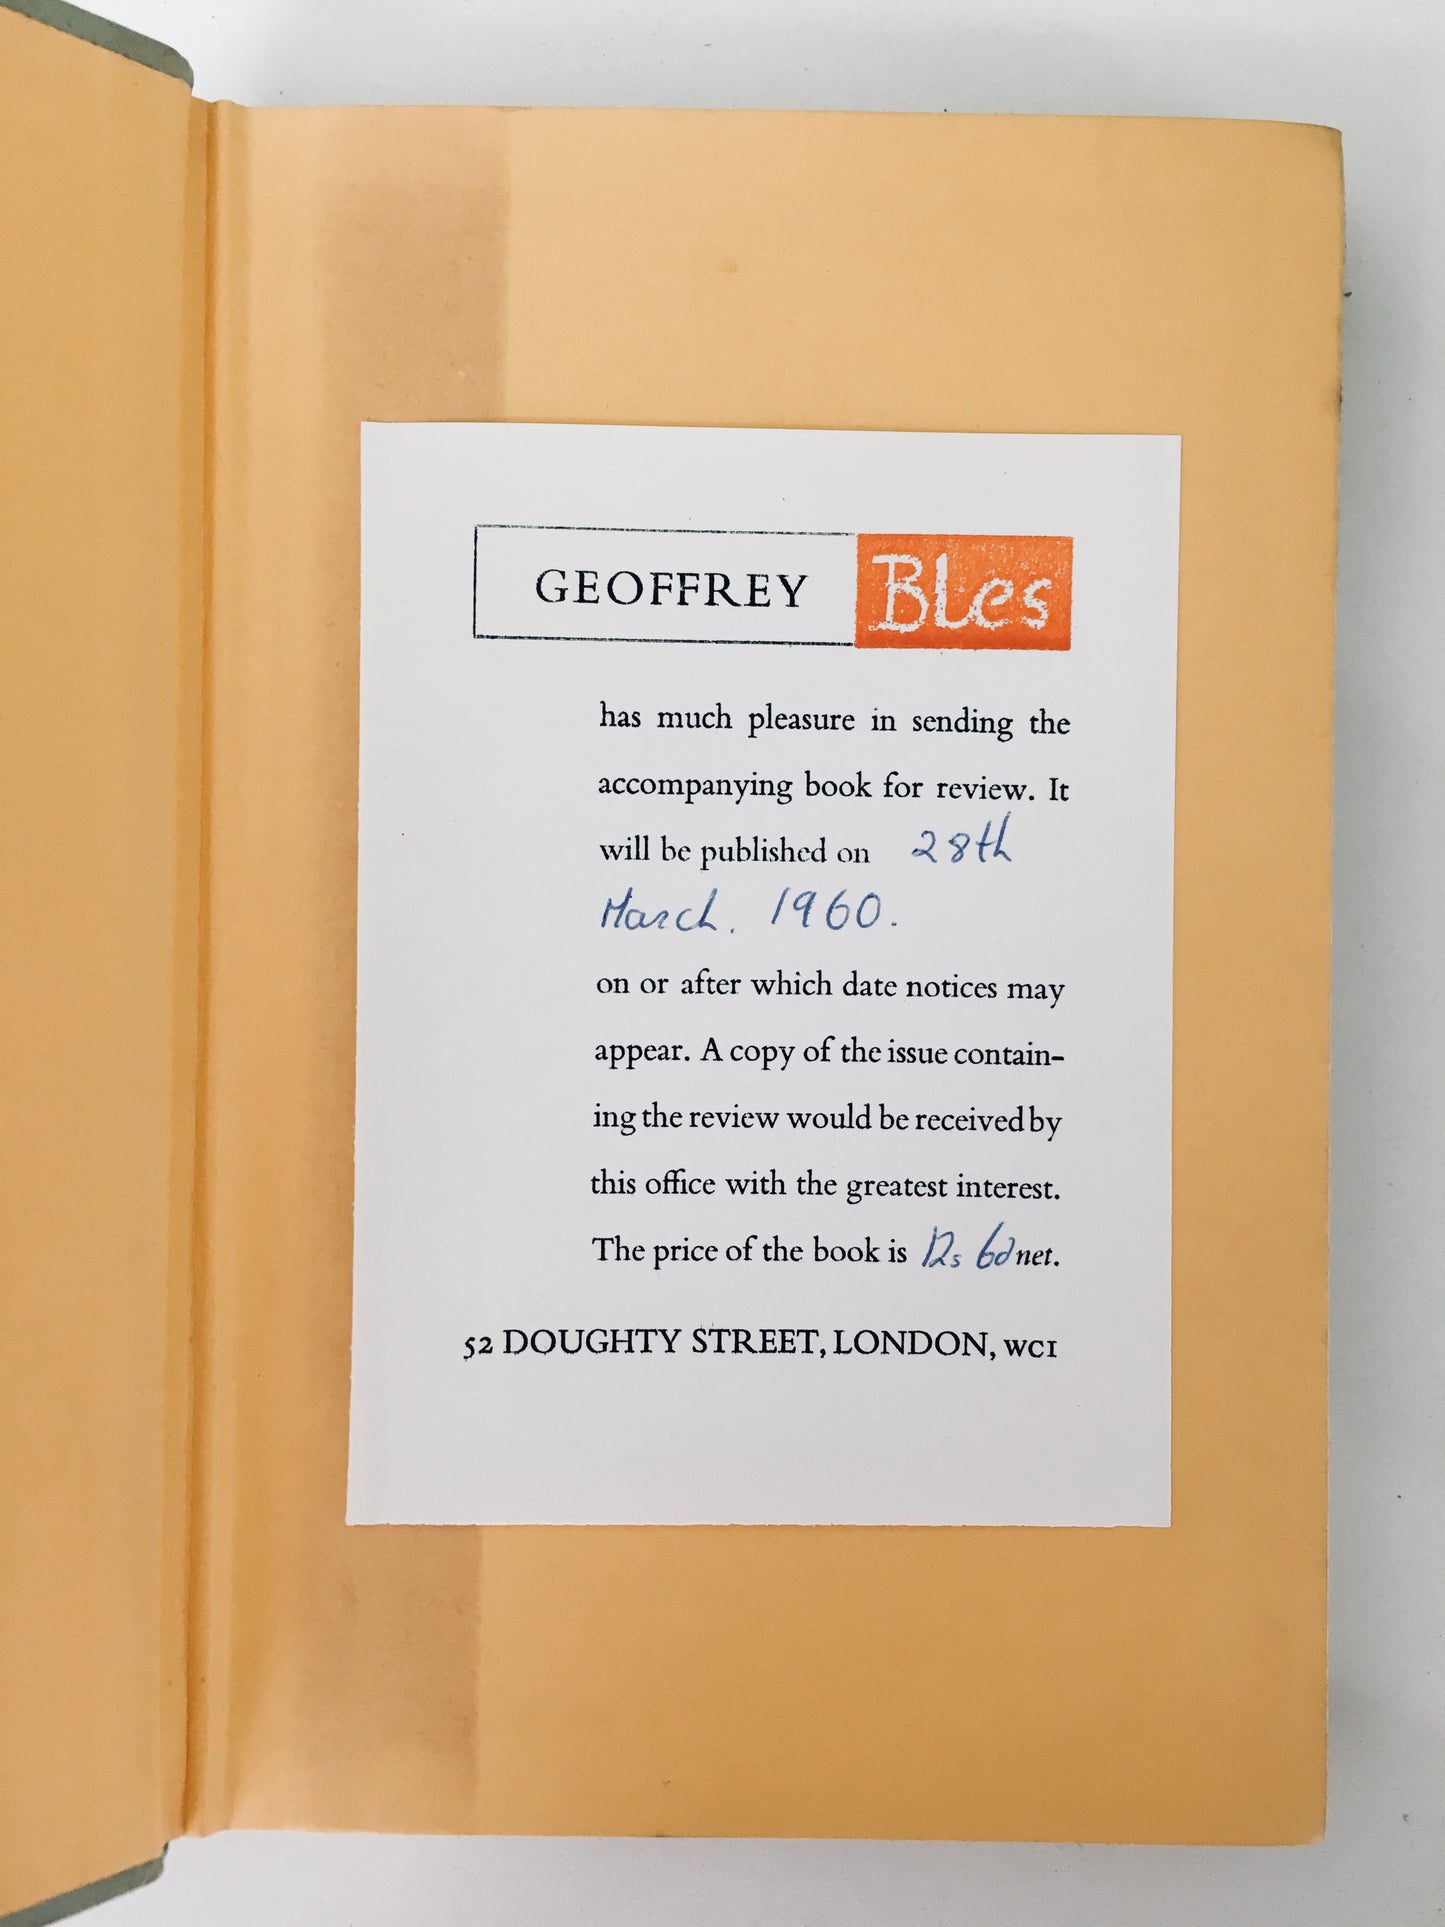 GEOFFREY Bles
has much pleasure in sending the
accompanying book for review. It
will be published on 28th
March. 1960.
on or after which date notices may
appear. A copy of the issue contain-
ing the review would be received by
this office with the greatest interest.
The price of the book is 12s 6d net.
52 DOUGHTY STREET, LONDON, WC1